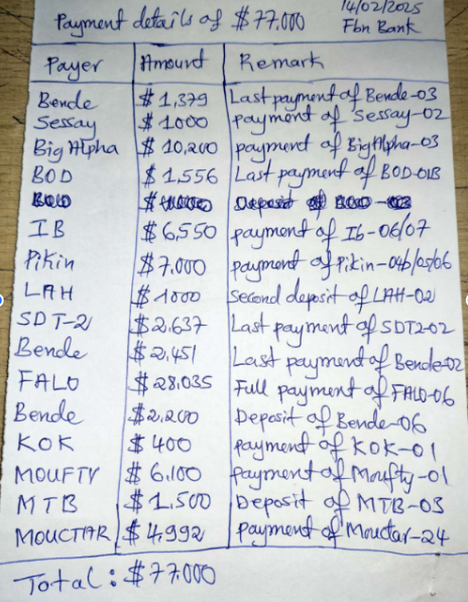 Payment details of $77.000
14/02/2025
Fbn Bank
Payer Amount Remark
Bende $1,379 Last payment of Bende-03
Sessay $1.000 payment of Sessay-02
Big Alpha $10,200 payment of Big Alpha-03
BOD $1,556 Last payment of BOD-01B
IB $6,550 payment of Ib-06/07
Pikin $7.000 payment of Pikin-04b/05/06
LAH $1000 Second deposit of LAH-02
SDT-2 $2,637 Last payment of SDT2-02
Bende $2,451 Last payment of Bende-02
FALO $28,035 Full payment of FALO-06
Bende $2,200 Deposit of Bende-06
KOK $400 payment of KOK-01
MOUFTY $6.100 payment of Moufty-01
MTB $1,500 Deposit of MTB-03
MOUCTAR $4,992 payment of Mouctar-24
Total: $77.000